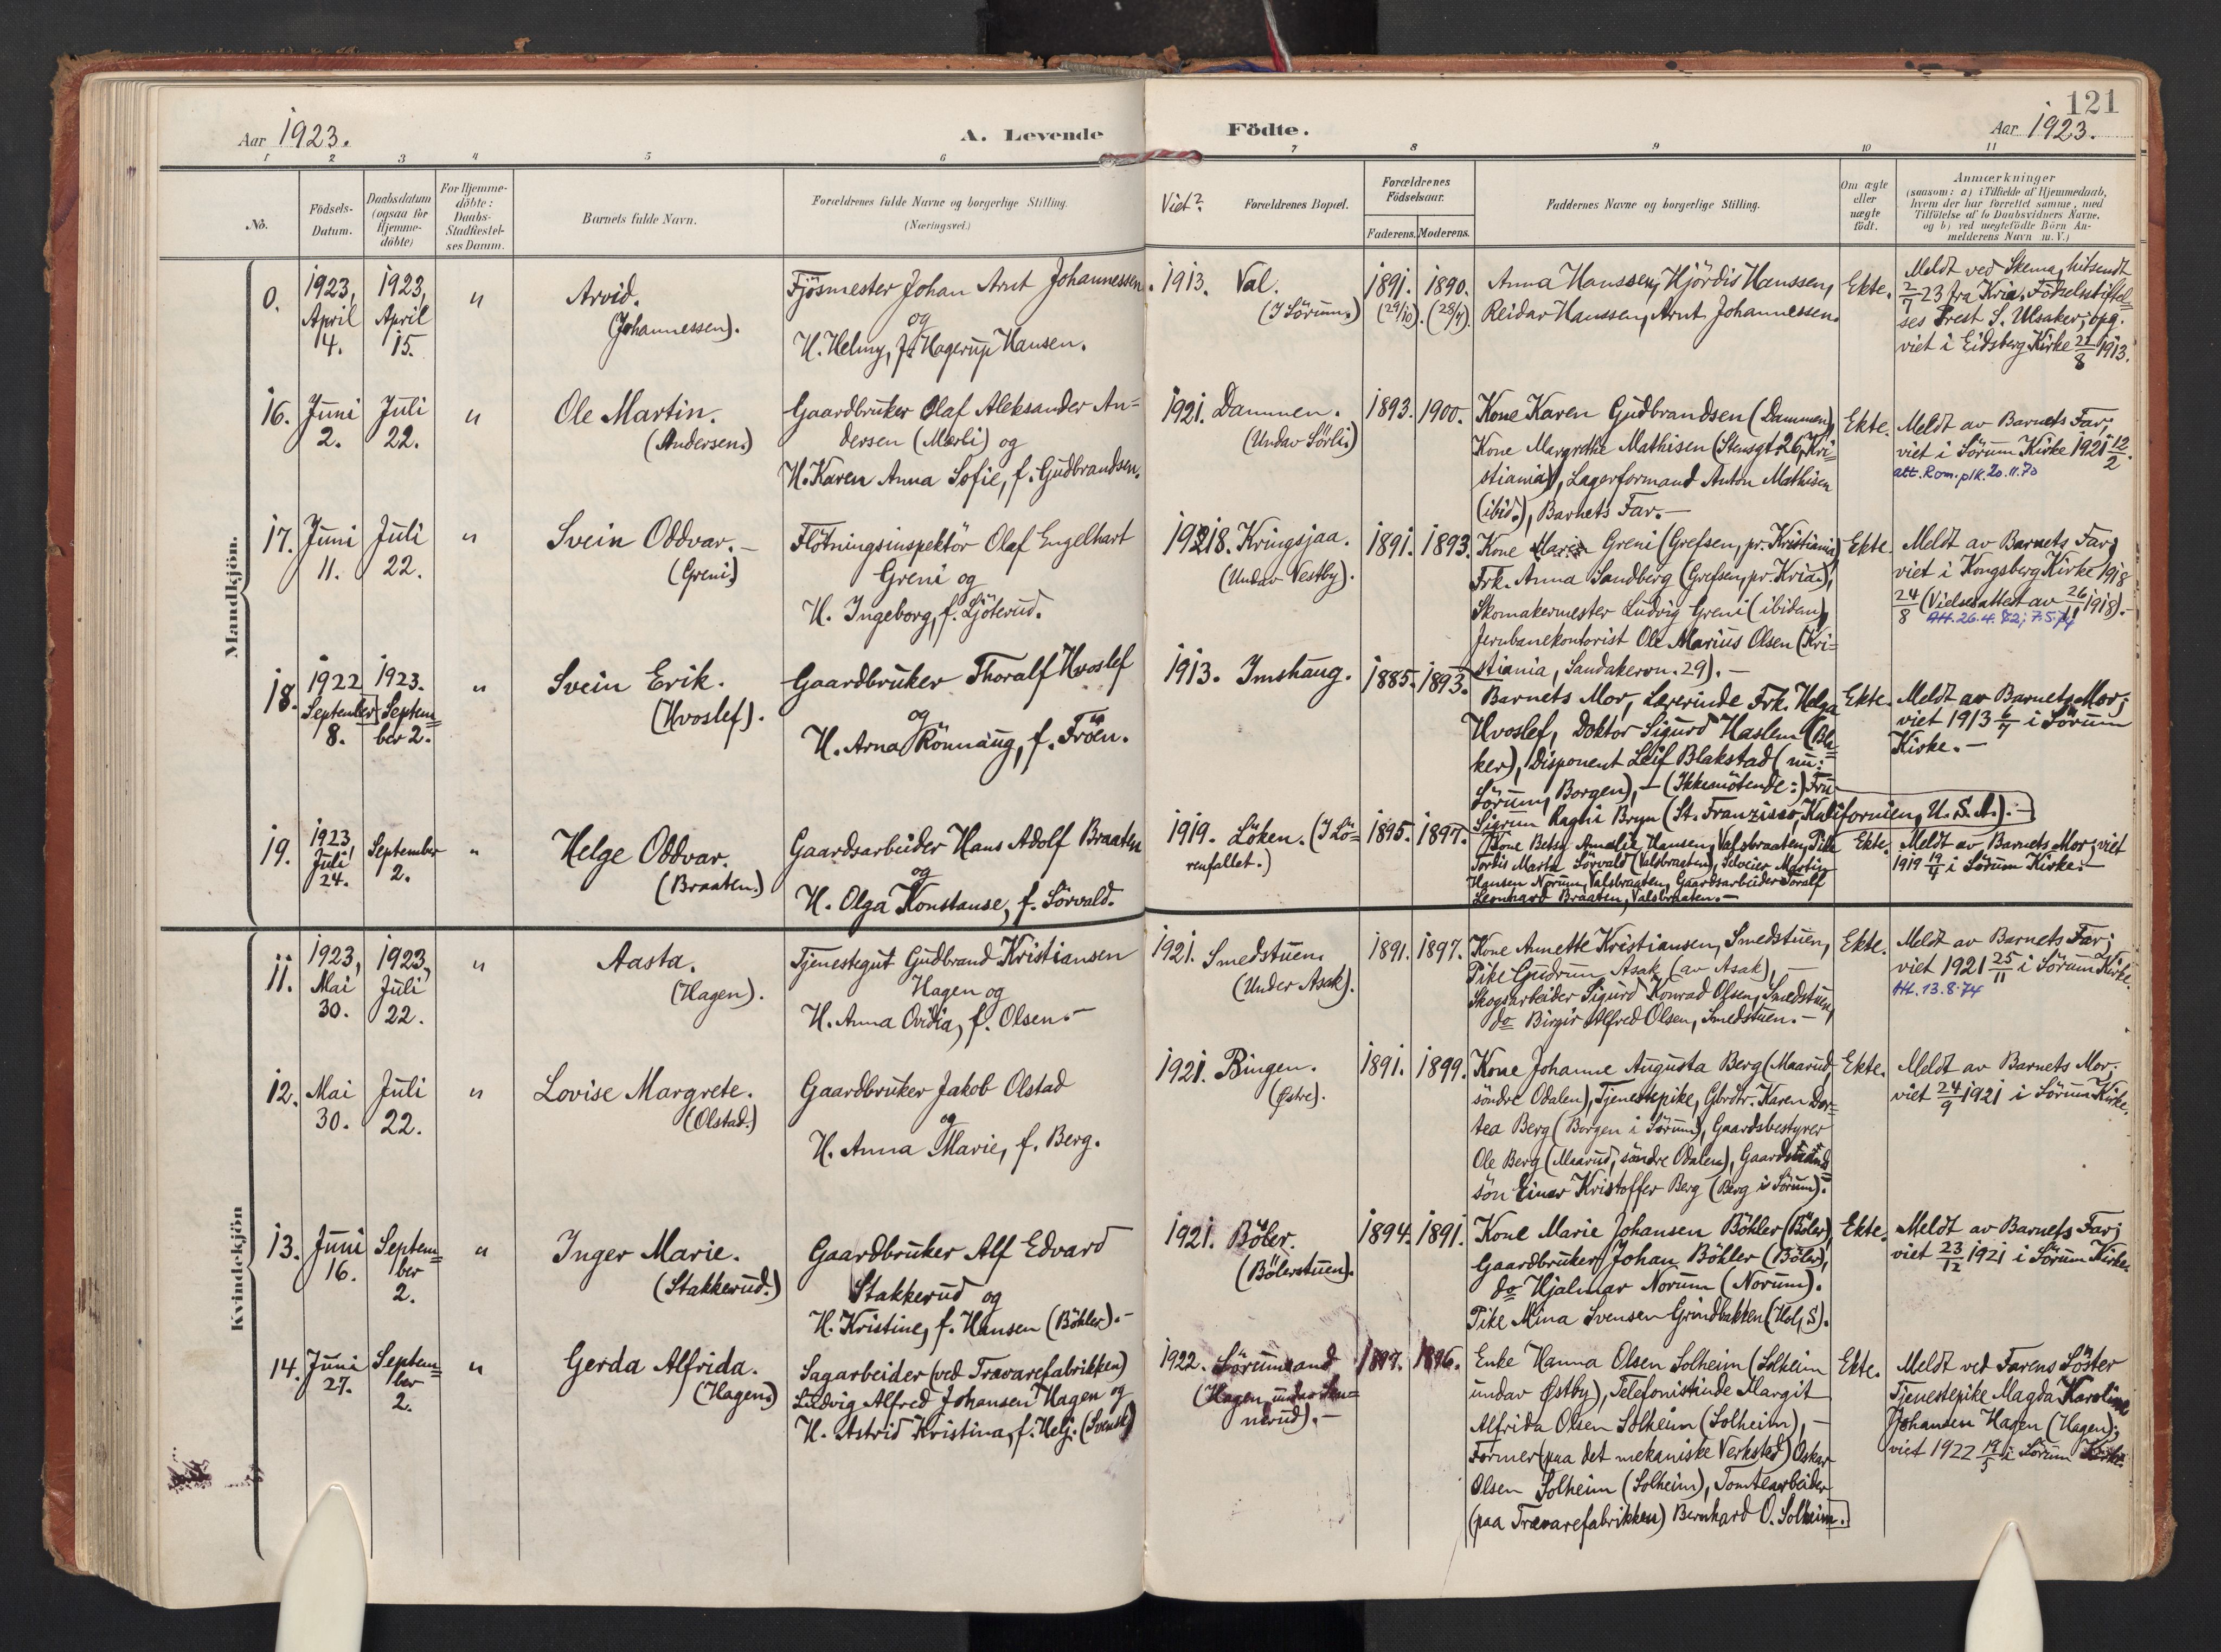 121
Aar 1923.
A. Levende
Födte.
Aar 1923.
1 2 3 4 5 6 7 8 9 10 11
No.
Födsels-
Datum.
Daabsdatum
(ogsaa for
Hjemme-
döbte)
For Hjemme-
döbte:
Daabs-
Stadfæstel-
ses Datum.
Barnets fulde Navn.
Forældrenes fulde Navne og borgerlige Stilling.
(Næringsvei.)
Viet?
Forældrenes Bopæl.
Forældrenes
Födselsaar.
Faderens. Moderens.
Faddernes Navne og borgerlige Stilling.
Om ægte
eller
uægte
födt.
Anmærkninger
(saasom: a) i Tilfælde af Hjemmedaab,
hvem der har forrettet samme, med
Tilföielse af to Daabsvidners Navne.
og b) ved uægtefödte Börn An-
melderens Navn m. V.)
Mandkjön.
0.
1923,
April
14.
1923,
April
15.
"
Arvid.
(Johannessen).
Fjösmester Johan Arnt Johannessen
og
H. Helmy, f. Hagerup Hansen.
1913.
Val.
(I Sörum.)
1891.
(29/10).
1890.
(28/4).
Anna Hanssen, Hjördis Hanssen,
Reidar Hanssen, Arnt Johannessen.
Ekte.
Meldt ved Skema, hitsendt
2/7 23 fra Kria. Födselsstiftel=
ses Prest S. Ulsaker; opg.
viet i Eidsberg Kirke 21/8 1913.
16.
Juni
2.
Juli
22.
"
Ole Martin.
(Andersen.)
Gaardbruker Olaf Aleksander An=
dersen (Mærli) og
H. Karen Anna Sofie, f. Gudbrandsen.
1921.
Dammen.
(Undav Sörli.)
1893.
1900.
Kone Karen Gudbrandsen (Dammen),
Kone Margrethe Mathisen (Stensgt. 26, Kri=
stiania), Lagerformand Anton Mathisen
(ibid.), Barnets Far.—
Ekte.
Meldt av Barnets Far,
viet i Sörum Kirke 1921 12/2.
att. Rom. p/k. 20.11.70
17.
Juni
11.
Juli
22.
"
Svein Oddvar.—
(Greni.)
Flötningsinspektör Olaf Engelhart
Greni og
H. Ingeborg, f. Sjöterud.
1918.
Kringsjaa.
(Undav Vestby).
1891.
1893.
Kone Maria Greni (Grefsen, pr. Kristiania)
Frk. Anna Sandberg (Grefsen, pr. Kria.),
Skomakermester Ludvig Greni (ibidem),
Jernbanekontorist Ole Marius Olsen (Kri=
stiania, Sandakervn. 29).—
Ekte.
Meldt av Barnets Far;
viet i Kongsberg Kirke 1918
24/8 (Vielsesattest av 26/11 1918).—
Att. 26.4.72; 7.5.74
18.
1922
September
8.
1923.
Septem=
ber 2.
"
Svein Erik.
(Hvoslef).
Gaardbruker Thoralf Hvoslef
og
H. Arna Rönnaug, f. Fröen.
1913.
Imshaug.
1885.
1893.
Barnets Mor, Lærerinde Frk. Helga
Hvoslef, Doktor Sigurd Haslem (Bla=
ker), Disponent Leif Blakstad (nu:
Sörum, Borgen), — (Ikkemötende:) Fru
Sigrun Ragni Bryn (St. Franzisco, Kalifornien, U. S. A.).—
Ekte.
Meldt av Barnets Mor;
viet 1913 6/7 i Sörum
Kirke.—
19.
1923,
Juli
24.
September
2.
"
Helge Oddvar.
(Braaten.)
Gaardsarbeider Hans Adolf Braaten
og
H. Olga Konstanse, f. Sörvald.
1919.
Löken. (I Lö=
renfallet.)
1895.
1897.
Kone Betsy Amalie Hansen, Valsbraaten, Pike
Tordis Marta Sörvald (Valsbraaten), Selveier Martin
Hansen Norum, Valsbraaten, Gaardsarbeider Toralf
Leonhard Braaten, Valsbraaten.—
Ekte.
Meldt av Barnets Mor; viet
1919 19/4 i Sörum Kirke.—
Kvindekjön
11.
1923,
Mai
30.
1923,
Juli
22.
"
Aasta.
(Hagen).
Tjenestegut Gudbrand Kristiansen
Hagen og
H. Anna Ovidia, f. Olsen.—
1921.
Smedstuen.
(Under Asak).
1891.
1897.
Kone Annette Kristiansen, Smedstuen,
Pike Gudrun Asak (av Asak), —
Skogsarbeider Sigurd Konrad Olsen, Smedstuen,
do Birgir Alfred Olsen, Smedstuen.—
Ekte.
Meldt av Barnets Far;
viet 1921 25/11 i Sörum Kirke.
Att. 13.8.74
12.
Mai
30.
Juli
22.
"
Lovise Margrete.
(Olstad.)
Gaardbruker Jakob Olstad
og
H. Anna Marie, f. Berg.
1921.
Bingen.
(Østre).
1891.
1899.
Kone Johanne Augusta Berg (Maarud,
söndre Odalen), Tjenestepike, Gbrdtr. Karen Dor=
tea Berg (Borgen i Sörum), Gaardsbestyrer
Ole Berg (Maarud, söndre Odalen), Gaardmands=
sön Einar Kristoffer Berg (Berg i Sörum).
Ekte.
Meldt av Barnets Mor.
viet 24/9 1921 i Sörum Kirke.
13.
Juni
16.
Septem=
ber
2.
"
Inger Marie.
(Stakkerud.)
Gaardbruker Alf Edvard
Stakkerud og
H. Kristine, f. Hansen (Böhler).—
1921.
Böler.
(Bölerstuen).
1894.
1891.
Kone Marie Johansen Böhler (Böler),
Gaardbruker Johan Böhler (Böler),
do Hjalmar Norum (Norum).
Pike Mina Svensen Grindbakken (Hol, S).
Ekte.
Meldt av Barnets Far;
viet 23/12 1921 i Sörum Kirke.
14.
Juni
27.
Septem=
ber
2.
"
Gerda Alfrida.
(Hagen.)
Sagarbeider (ved Trævarefabrikken)
Ludvig Alfred Johansen Hagen og
H. Astrid Kristina, f. Helj. (Svensk)
1922.
Sörumsand
(Hagen, undav
nerud).—
1896.
Enke Hanna Olsen Solheim (Solheim
undav Østby), Telefonistinde Margit
Alfrida Olsen Solheim (Solheim), —
Former (paa det mekaniske Verksted) Oskar
Olsen Solheim (Solheim), Tomtearbeider
(paa Trævarefabrikken) Bernhard O. Solheim.
Ekte.
Meldt ved Farens Söster
Tjenestepike Magda Karoline
Johansen Hagen (Hagen);
viet 1922 19/5 i Sörum Kirke.